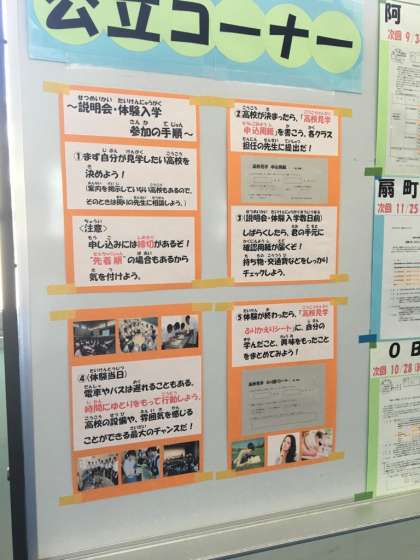 公立コーナー
～説明会・体験入学
参加の手順～
①まず自分が見学したい高校を
決めよう！
(案内を掲示していない高校もあるので、
そのときは周りの先生に相談しよう。)
〈注意〉
申し込みには締切があるぞ！
“先着順”の場合もあるから
気を付けよう。
②高校が決まったら、「高校見学
申込用紙」を書こう、各クラス
担任の先生に提出だ！
高校見学 申込用紙
③(説明会・体験入学数日前)
しばらくしたら、君の手元に
確認用紙が届くぞ！
持ち物・交通費などをしっかり
チェックしよう。
④(体験当日)
電車やバスは遅れることもある。
時間にゆとりをもって行動しよう。
高校の設備や、雰囲気を感じる
ことができる最大のチャンスだ！
⑤体験が終わったら、「高校見学
ふりかえりシート」に、自分の
学んだこと、興味をもったこと
をまとめてみよう！
阿
次回 9/3
扇町
11/25
OB
次回 10/28